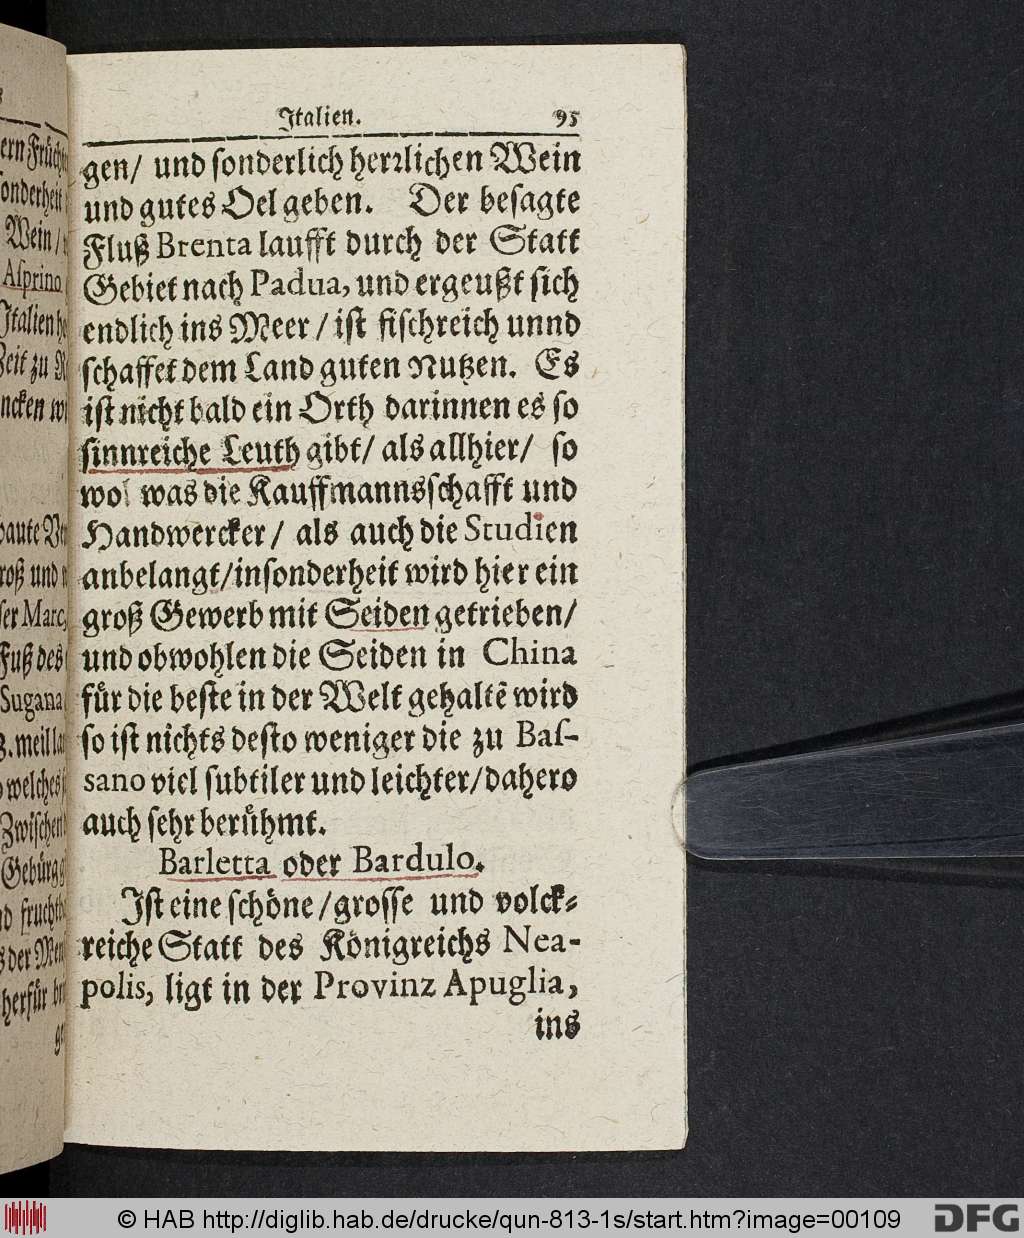 Italien. 95
gen/ und ſonderlich herꝛlichen Wein
und gutes Oel geben. Der beſagte
Fluß Brenta laufft durch der Statt
Gebiet nach Padua, und ergeußt ſich
endlich ins Meer / iſt fiſchreich unnd
ſchaffet dem Land guten Nutzen. Es
iſt nicht bald ein Orth darinnen es ſo
ſinnreiche Leuth gibt/ als allhier/ ſo
wol was die Kauffmannsſchafft und
Handwercker/ als auch die Studien
anbelangt/inſonderheit wird hier ein
groß Gewerb mit Seiden getrieben/
und obwohlen die Seiden in China
für die beſte in der Welt gehaltẽ wird
ſo iſt nichts deſto weniger die zu Baſ-
sano viel ſubtiler und leichter/dahero
auch ſehr berühmt.
Barletta oder Bardulo.
Iſt eine ſchöne/groſſe und volck-
reiche Statt des Königreichs Nea-
polis, ligt in der Provinz Apuglia,
ins
ern Früch
onderheit
Wein/
Aſprino
Italien
Zeit zu
ncken
baute
roß und
ſer Marc,
Fuß des
Sugana
welches
Zwiſchen
Gebürg
der
herfür
© HAB http://diglib.hab.de/drucke/qun-813-1s/start.htm?image=00109
DFG